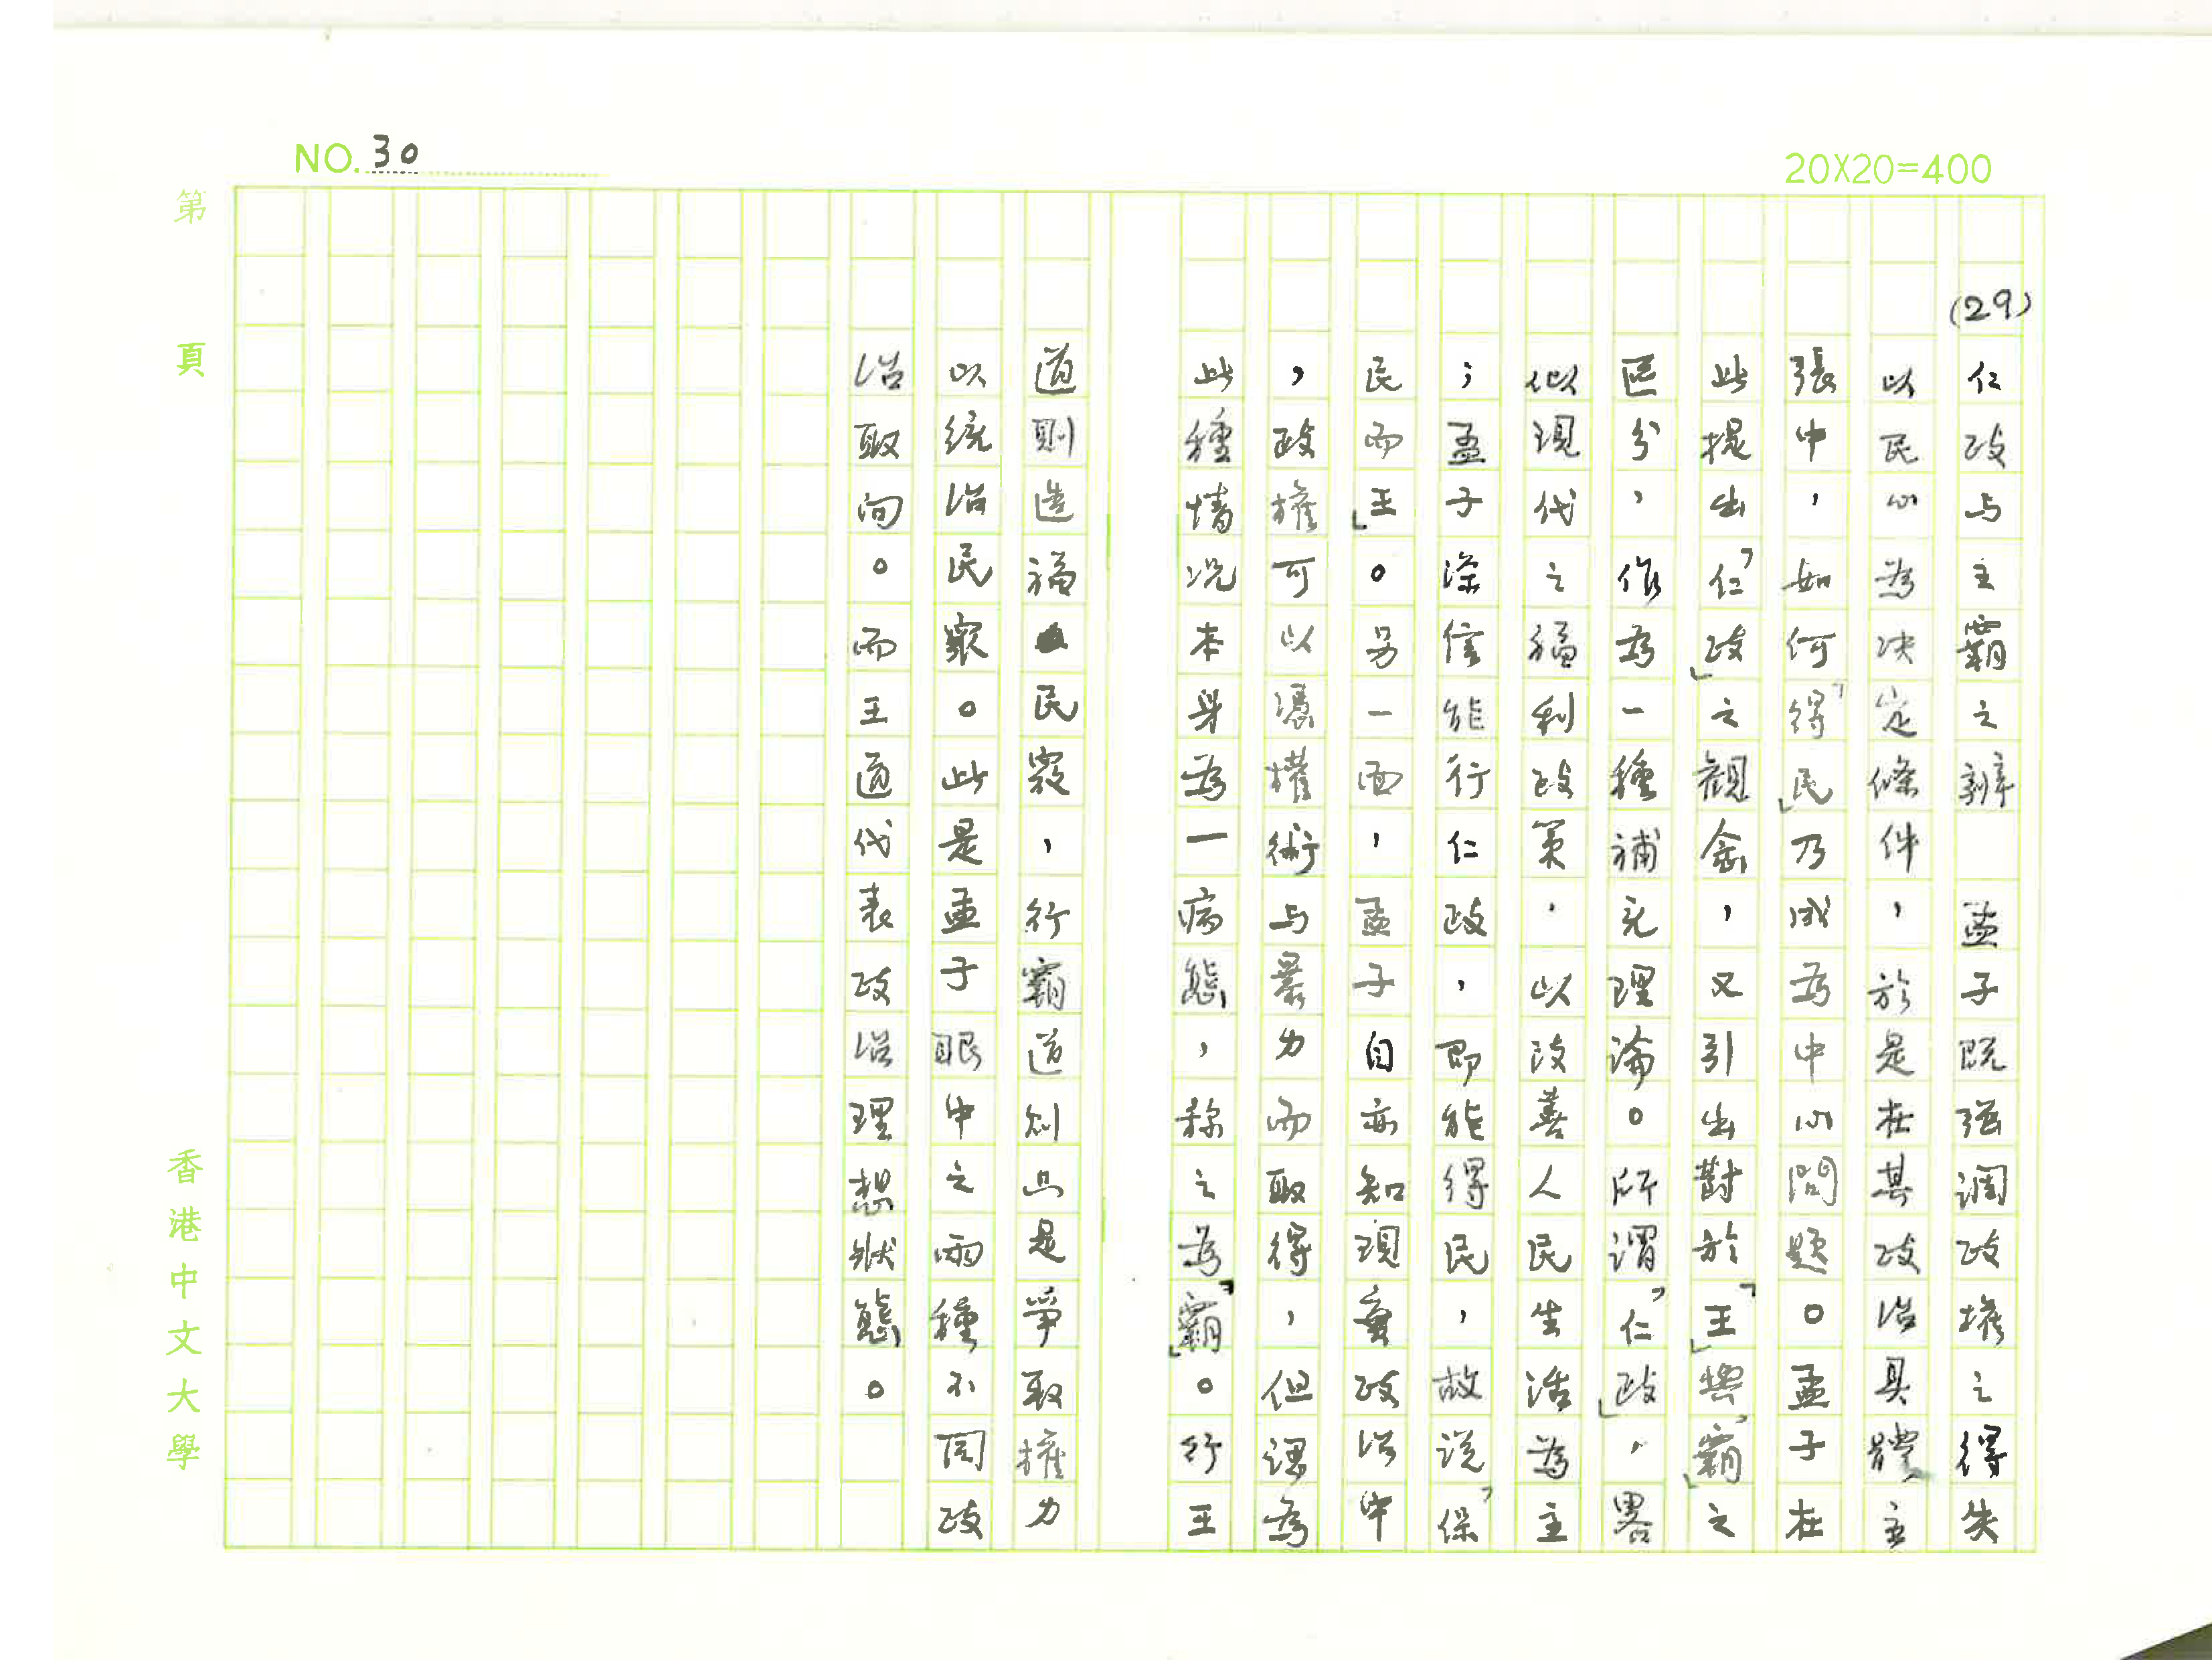 NO. 30
20X20=400
(29)
仁政与王霸之辨　孟子既强调政權之得失
以民心為决定條件，於是在其政治具體主
張中，如何「得民」乃成為中心問題。孟子在
此提出「仁政」之觀念，又引出對於「王」與「霸」之
區分，作為一種補充理論。所謂「仁政」，畧
似現代之福利政策，以改善人民生活為主
；孟子深信能行仁政，即能得民，故說「保
民而王」。另一面，孟子自亦知現實政治中
，政權可以憑權術与暴力而取得，但認為
此種情况本身為一病態，称之為「霸」。行王
道則造福民衆，行霸道則只是爭取權力
以統治民衆。此是孟子眼中之兩種不同政
治取向。而王道代表政治理想狀態。
第　頁
香港中文大學